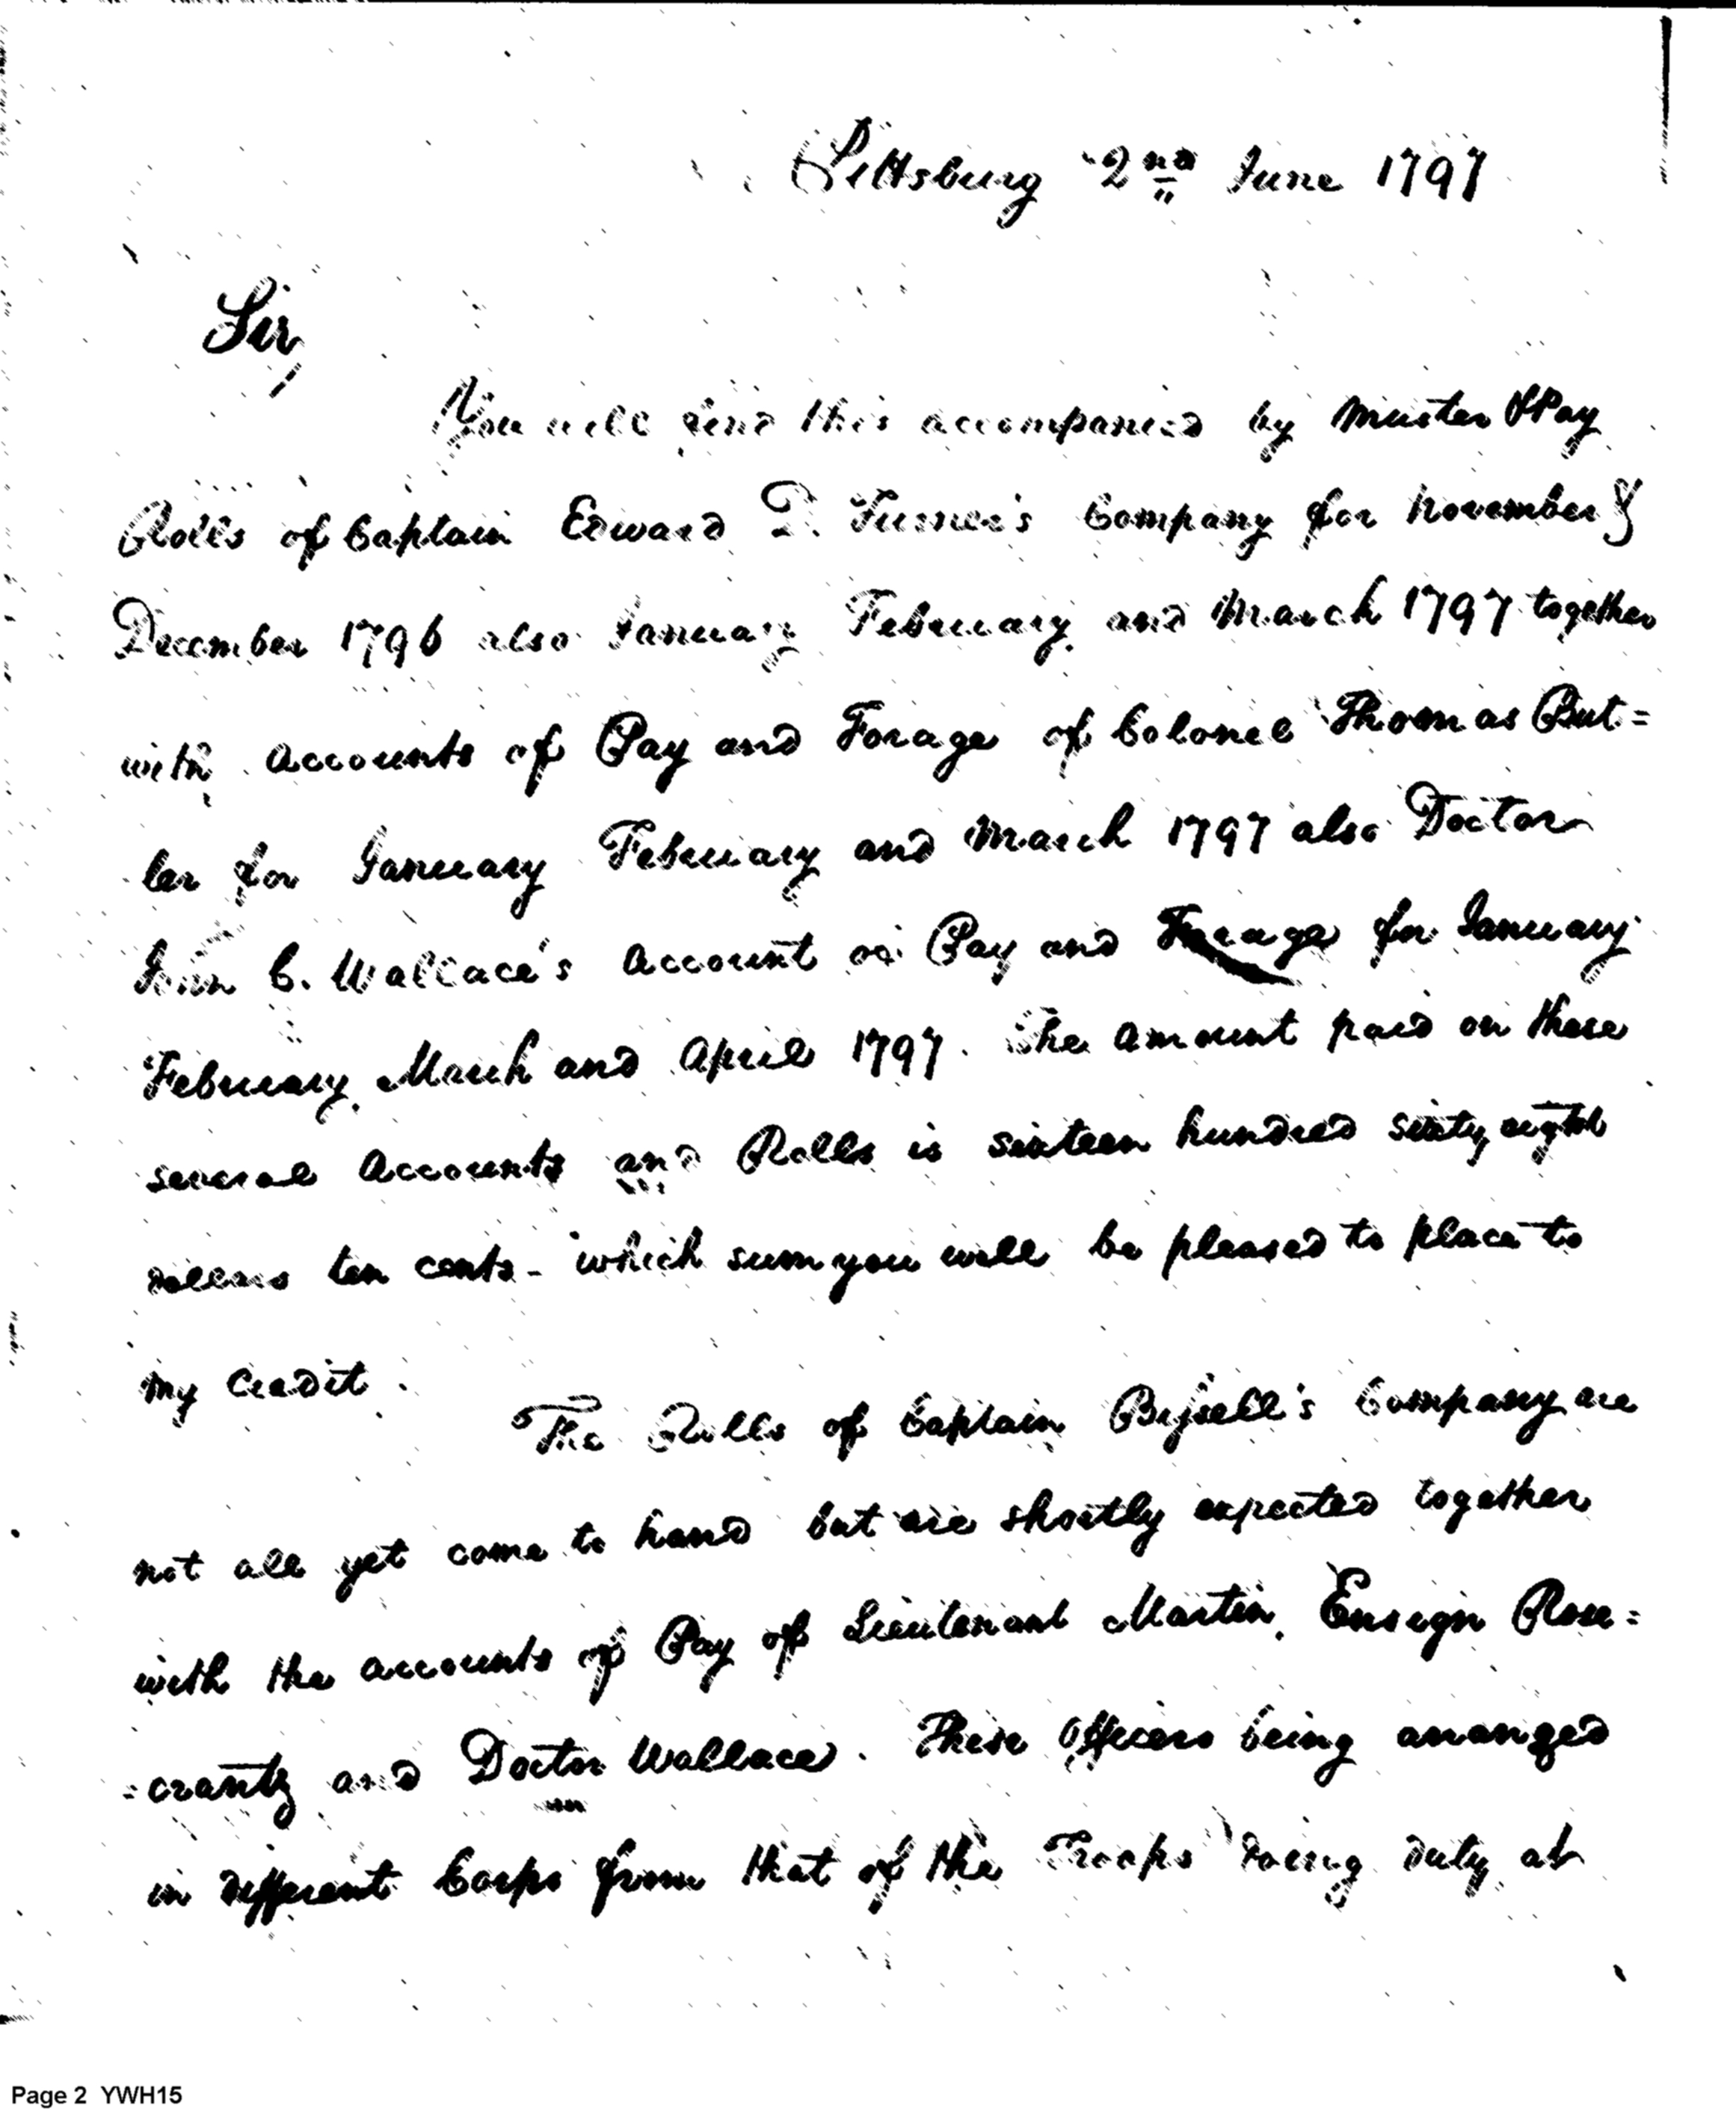 Pittsburg 2nd June 1797
Sir,
You will find this accompanied by Muster & Pay
Rolls of Captain Edward D. Turner's Company for November &
December 1796 also January February and March 1797 together
with Accounts of Pay and Forage of Colonel Thomas But=
ler for January February and March 1797 also Doctor
John C. Wallace's Account of Pay and Forage for January
February, March and April 1797. The amount paid on these
several Accounts and Rolls is sixteen hundred sixty eight
dollars ten cents - which sum you will be pleased to place to
my Credit.
The Rolls of Captain Bissell's Company are
not all yet come to hand but are shortly expected together
with the accounts of Pay of Lieutenant Martin, Ensign Rose=
=crantz and Doctor Wallace. These Officers being arranged
in different Corps from that of the Troops doing duty at
Page 2 YWH15